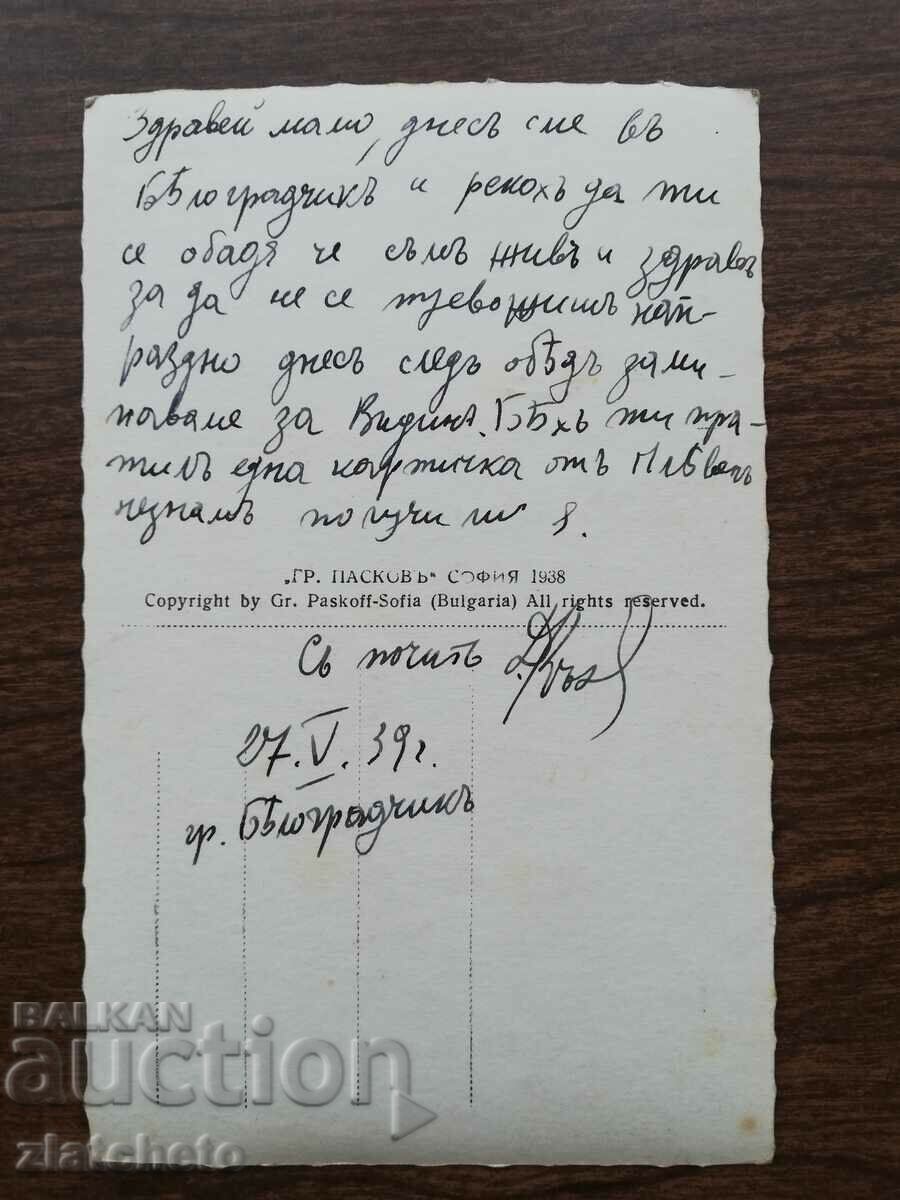 Здравей мамо, днесъ сме въ
Бѣлоградчикъ и рекохъ да ти
се обадя че съмъ живъ и здравъ
за да не се тревожишъ нап-
раздно днесъ следъ обѣдъ зами-
наваме за Видинъ. Бѣхъ ти пра-
тилъ една картичка отъ Плѣвенъ
незнамъ получи ли я.
„ГР. ПАСКОВЪ" СОФИЯ 1938
Copyright by Gr. Paskoff-Sofia (Bulgaria) All rights reserved.
Съ почитъ
27.V.39 г.
гр. Бѣлоградчикъ
BALKAN
auction
zlatcheto